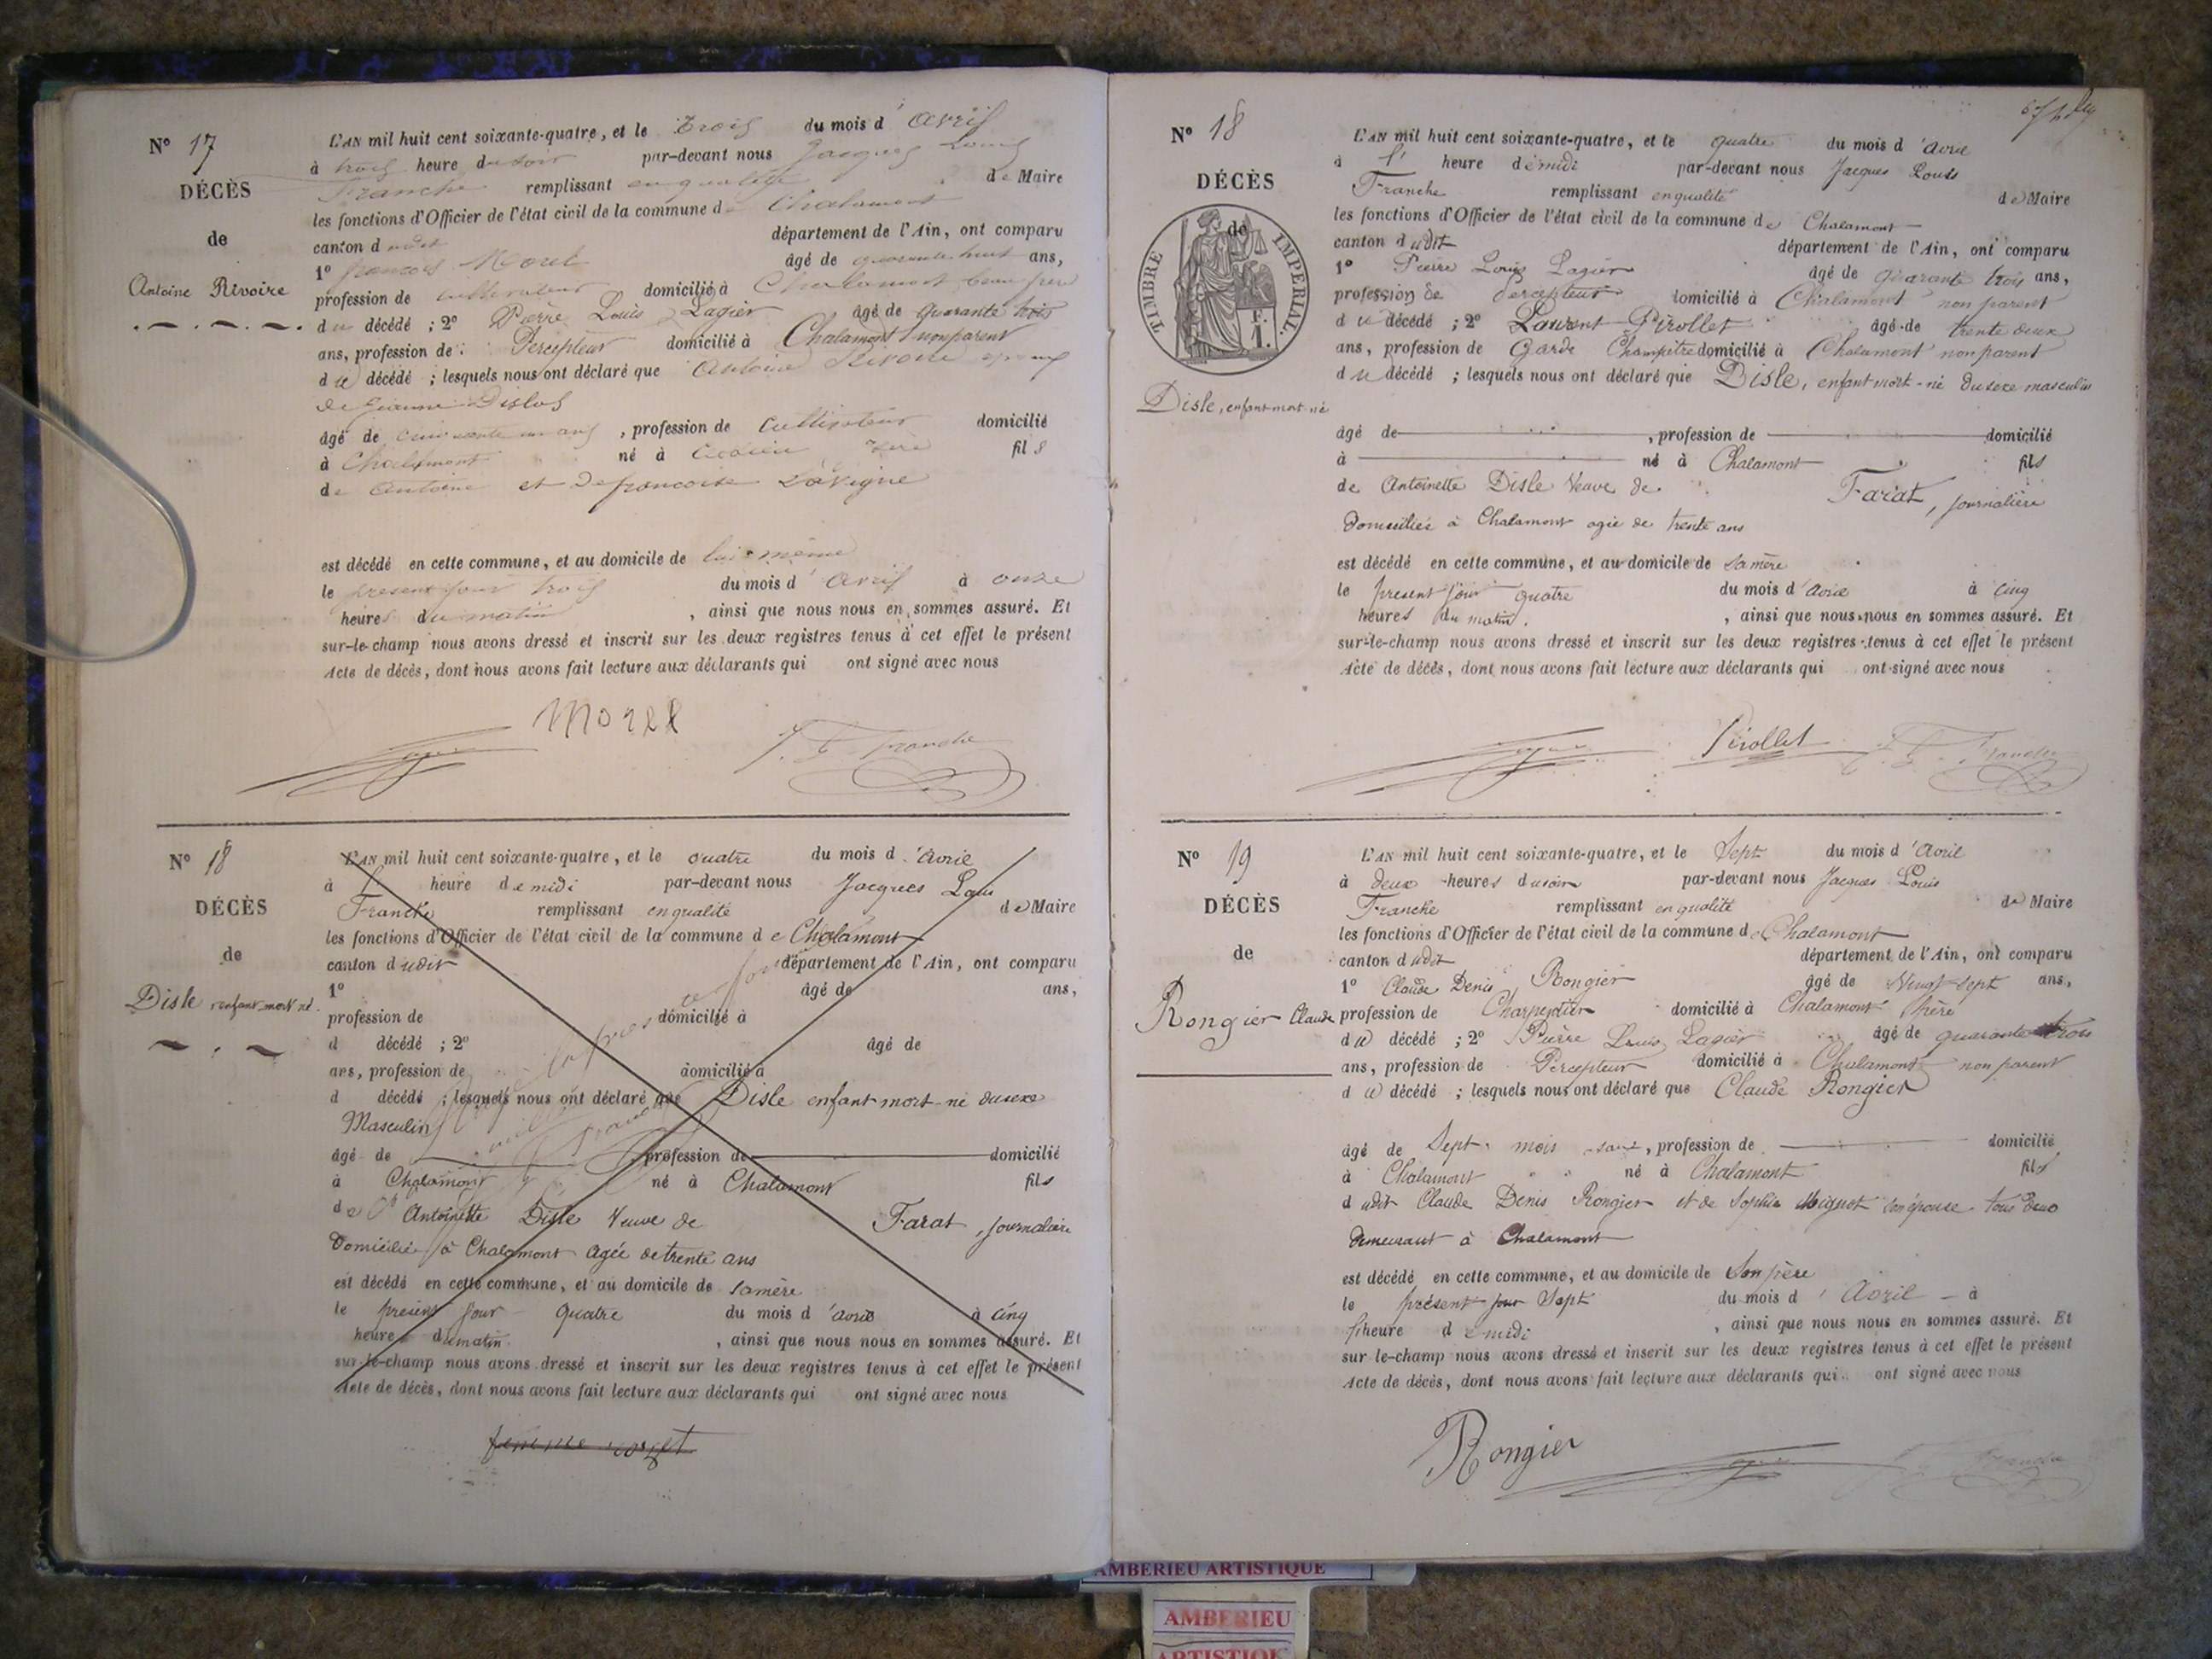 N° 17
DÉCÈS
de
Antoine Rivoire
L'AN mil huit cent soixante-quatre, et le trois du mois d'avril
à trois heure du soir par-devant nous Jacques Louis
Franche remplissant en qualité de Maire
les fonctions d'Officier de l'état civil de la commune de Chalamont
canton dudit département de l'Ain, ont comparu
1° françois Morel âgé de quarante huit ans,
profession de cultivateur domicilié à Chalamont beau frère
du décédé ; 2° Pierre Louis Lagier âgé de quarante trois
ans, profession de Percepteur domicilié à Chalamont non parent
du décédé ; lesquels nous ont déclaré que Antoine Rivoire époux
de Jeanne
âgé de cinquante un ans , profession de Cultivateur domicilié
à Chalamont né à fils
de Antoine et de francoise Lavigne
est décédé en cette commune, et au domicile de lui même
le présent jour trois du mois d'avril à onze
heures du matin , ainsi que nous nous en sommes assuré. Et
sur-le-champ nous avons dressé et inscrit sur les deux registres tenus à cet effet le présent
Acte de décès, dont nous avons fait lecture aux déclarants qui ont signé avec nous
Morel
J. L. Franche
N° 18
DÉCÈS
de
Disle enfant mort né.
L'AN mil huit cent soixante-quatre, et le quatre du mois d'avril
à 1' heure de midi par-devant nous Jacques Louis
Franche remplissant en qualité de Maire
les fonctions d'Officier de l'état civil de la commune de Chalamont
canton dudit département de l'Ain, ont comparu
1° âgé de ans,
profession de domicilié à
d décédé ; 2° âgé de
ans, profession de domicilié à
d décédé ; lesquels nous ont déclaré que Disle enfant mort-né du sexe
Masculin
âgé de profession de domicilié
à Chalamont né à Chalamont fils
de Antoinette Disle Veuve de Farat, journalière
Domiciliée à Chalamont agée de trente ans
est décédé en cette commune, et au domicile de sa mère
le présent jour quatre du mois d'avril à cinq
heures du matin. , ainsi que nous nous en sommes assuré. Et
sur-le-champ nous avons dressé et inscrit sur les deux registres tenus à cet effet le présent
Acte de décès, dont nous avons fait lecture aux déclarants qui ont signé avec nous
N° 18
DÉCÈS
de
TIMBRE IMPERIAL.
F.
1.
Disle, enfant mort-né
L'AN mil huit cent soixante-quatre, et le quatre du mois d'avril
à 1' heure de midi par-devant nous Jacques Louis
Franche remplissant en qualité de Maire
les fonctions d'Officier de l'état civil de la commune de Chalamont
canton dudit département de l'Ain, ont comparu
1° Pierre Louis Lagier âgé de quarante trois ans,
profession de Percepteur domicilié à Chalamont non parent
du décédé ; 2° Laurent Pirollet âgé de trente deux
ans, profession de Garde Champêtre domicilié à Chalamont non parent
du décédé ; lesquels nous ont déclaré que Disle, enfant mort-né du sexe masculin
âgé de , profession de domicilié
à né à Chalamont fils
de Antoinette Disle Veuve de Farat, journalière
Domiciliée à Chalamont agée de trente ans
est décédé en cette commune, et au domicile de sa mère
le présent jour quatre du mois d'avril à cinq
heures du matin. , ainsi que nous nous en sommes assuré. Et
sur-le-champ nous avons dressé et inscrit sur les deux registres tenus à cet effet le présent
Acte de décès, dont nous avons fait lecture aux déclarants qui ont signé avec nous
Pirollet
J. L. Franche
N° 19
DÉCÈS
de
Rongier Claude
L'AN mil huit cent soixante-quatre, et le Sept du mois d'Avril
à deux heures du soir par-devant nous Jacques Louis
Franche remplissant en qualité de Maire
les fonctions d'Officier de l'état civil de la commune de Chalamont
canton dudit département de l'Ain, ont comparu
1° Claude Denis Rongier âgé de Vingt-sept ans,
profession de Charpentier domicilié à Chalamont père
du décédé ; 2° Pierre Louis Lagier âgé de quarante trois
ans, profession de Percepteur domicilié à Chalamont non parent
du décédé ; lesquels nous ont déclaré que Claude Rongier
âgé de Sept mois sans, profession de domicilié
à Chalamont né à Chalamont fils
dudit Claude Denis Rongier et de Sophie Mignot son épouse tous deux
demeurant à Chalamont
est décédé en cette commune, et au domicile de Son père
le présent jour Sept du mois d'Avril à
1'heure de midi , ainsi que nous nous en sommes assuré. Et
sur le-champ nous avons dressé et inscrit sur les deux registres tenus à cet effet le présent
Acte de décès, dont nous avons fait lecture aux déclarants qui ont signé avec nous
Rongier
AMBERIEU ARTISTIQUE
AMBERIEU
ARTISTIQUE